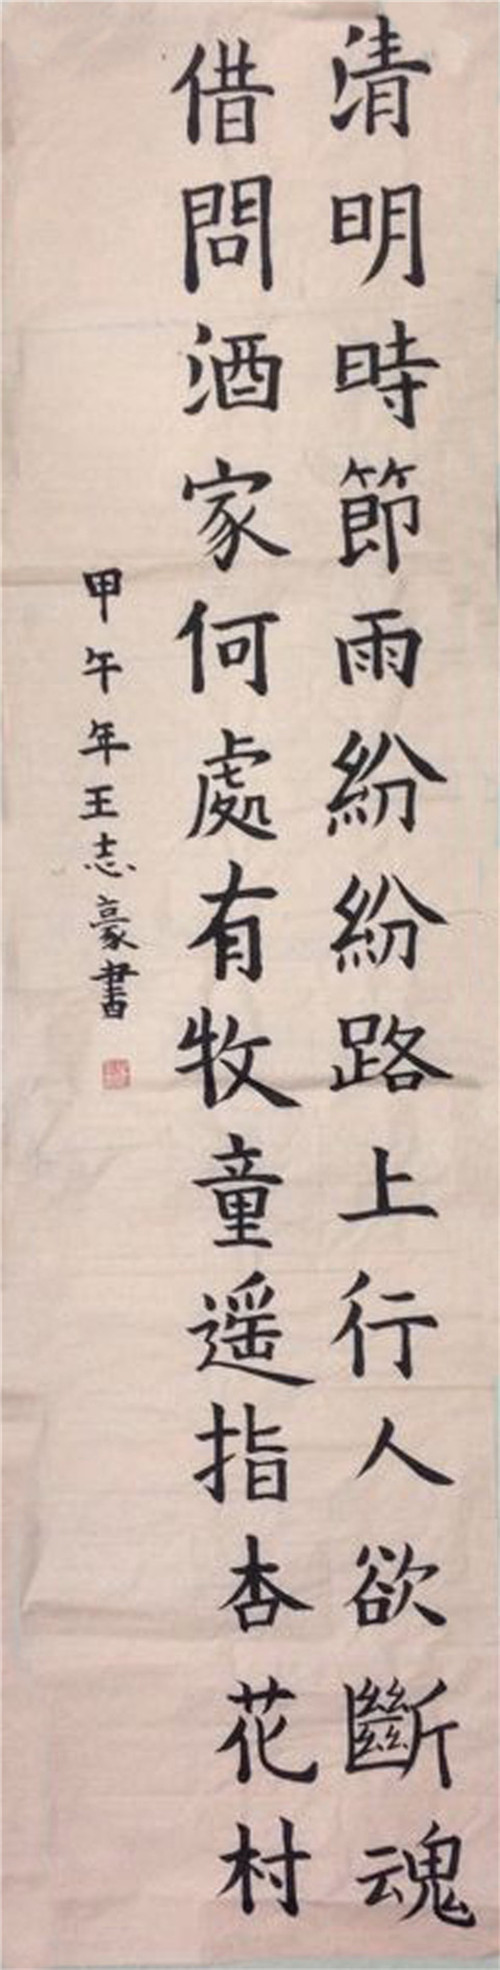 清明時節雨紛紛路上行人欲斷魂
借問酒家何處有牧童遥指杏花村
甲午年王志豪書